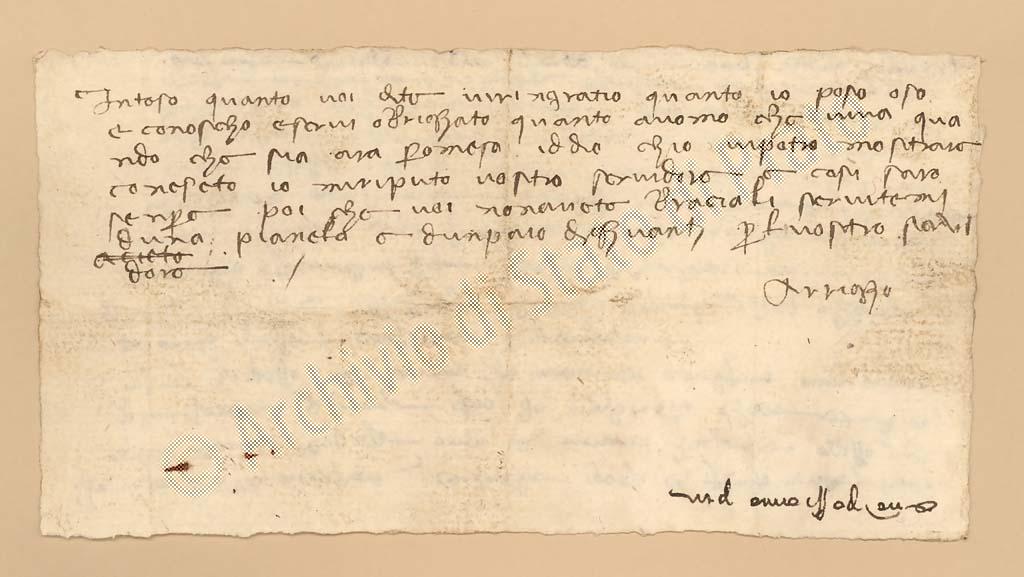 Inteso quanto voi dite vi ringratio quanto io poso eso
e conoscho eservi obrighato quanto a uomo che viva qua
ndo che sia ara promeso iddio chio vi potro mostrare
con efeto io mi riputo vostro servidore e cosi saro
senpre poi che voi non avete braciali servitemi
duna pianela e dun paio de ghuanti per l vostro servi
dore
Arrigho
© Archivio di Stato di Prato